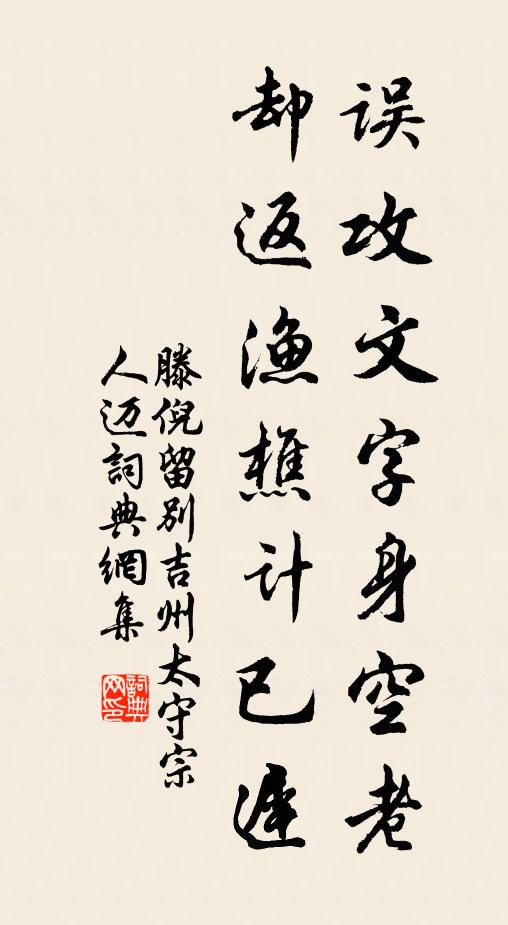 误攻文字身空老
却返漁樵計已遲
滕倪留别吉州太守宗
人迈詞典網集
詞典
网印